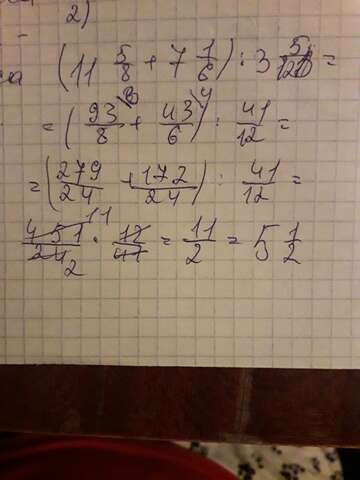 2)
(11 5/8 + 7 1/6) : 3 5/12 =
= (93/8 + 43/6) : 41/12 =
= (279/24 + 172/24) : 41/12 =
451/24 · 12/41 = 11/2 = 5 1/2